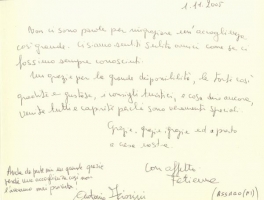 1.11.2005
Non ci sono parole per ringraziare un'accoglienza
così grande. Ci siamo sentiti subito amici come se ci
fossimo sempre conosciuti.
Un grazie per la grande disponibilità, le torte così
gradite e gustose, i consigli turistici, e cosa dire ancora,
venite tutti e capirete perché sono veramente speciali.
Grazie, grazie, grazie, ed a presto
a casa nostra.
Con affetto
Anche da parte mia un grande grazie
perché una accoglienza così non
l'avevamo mai
(ASSAGO (MI))